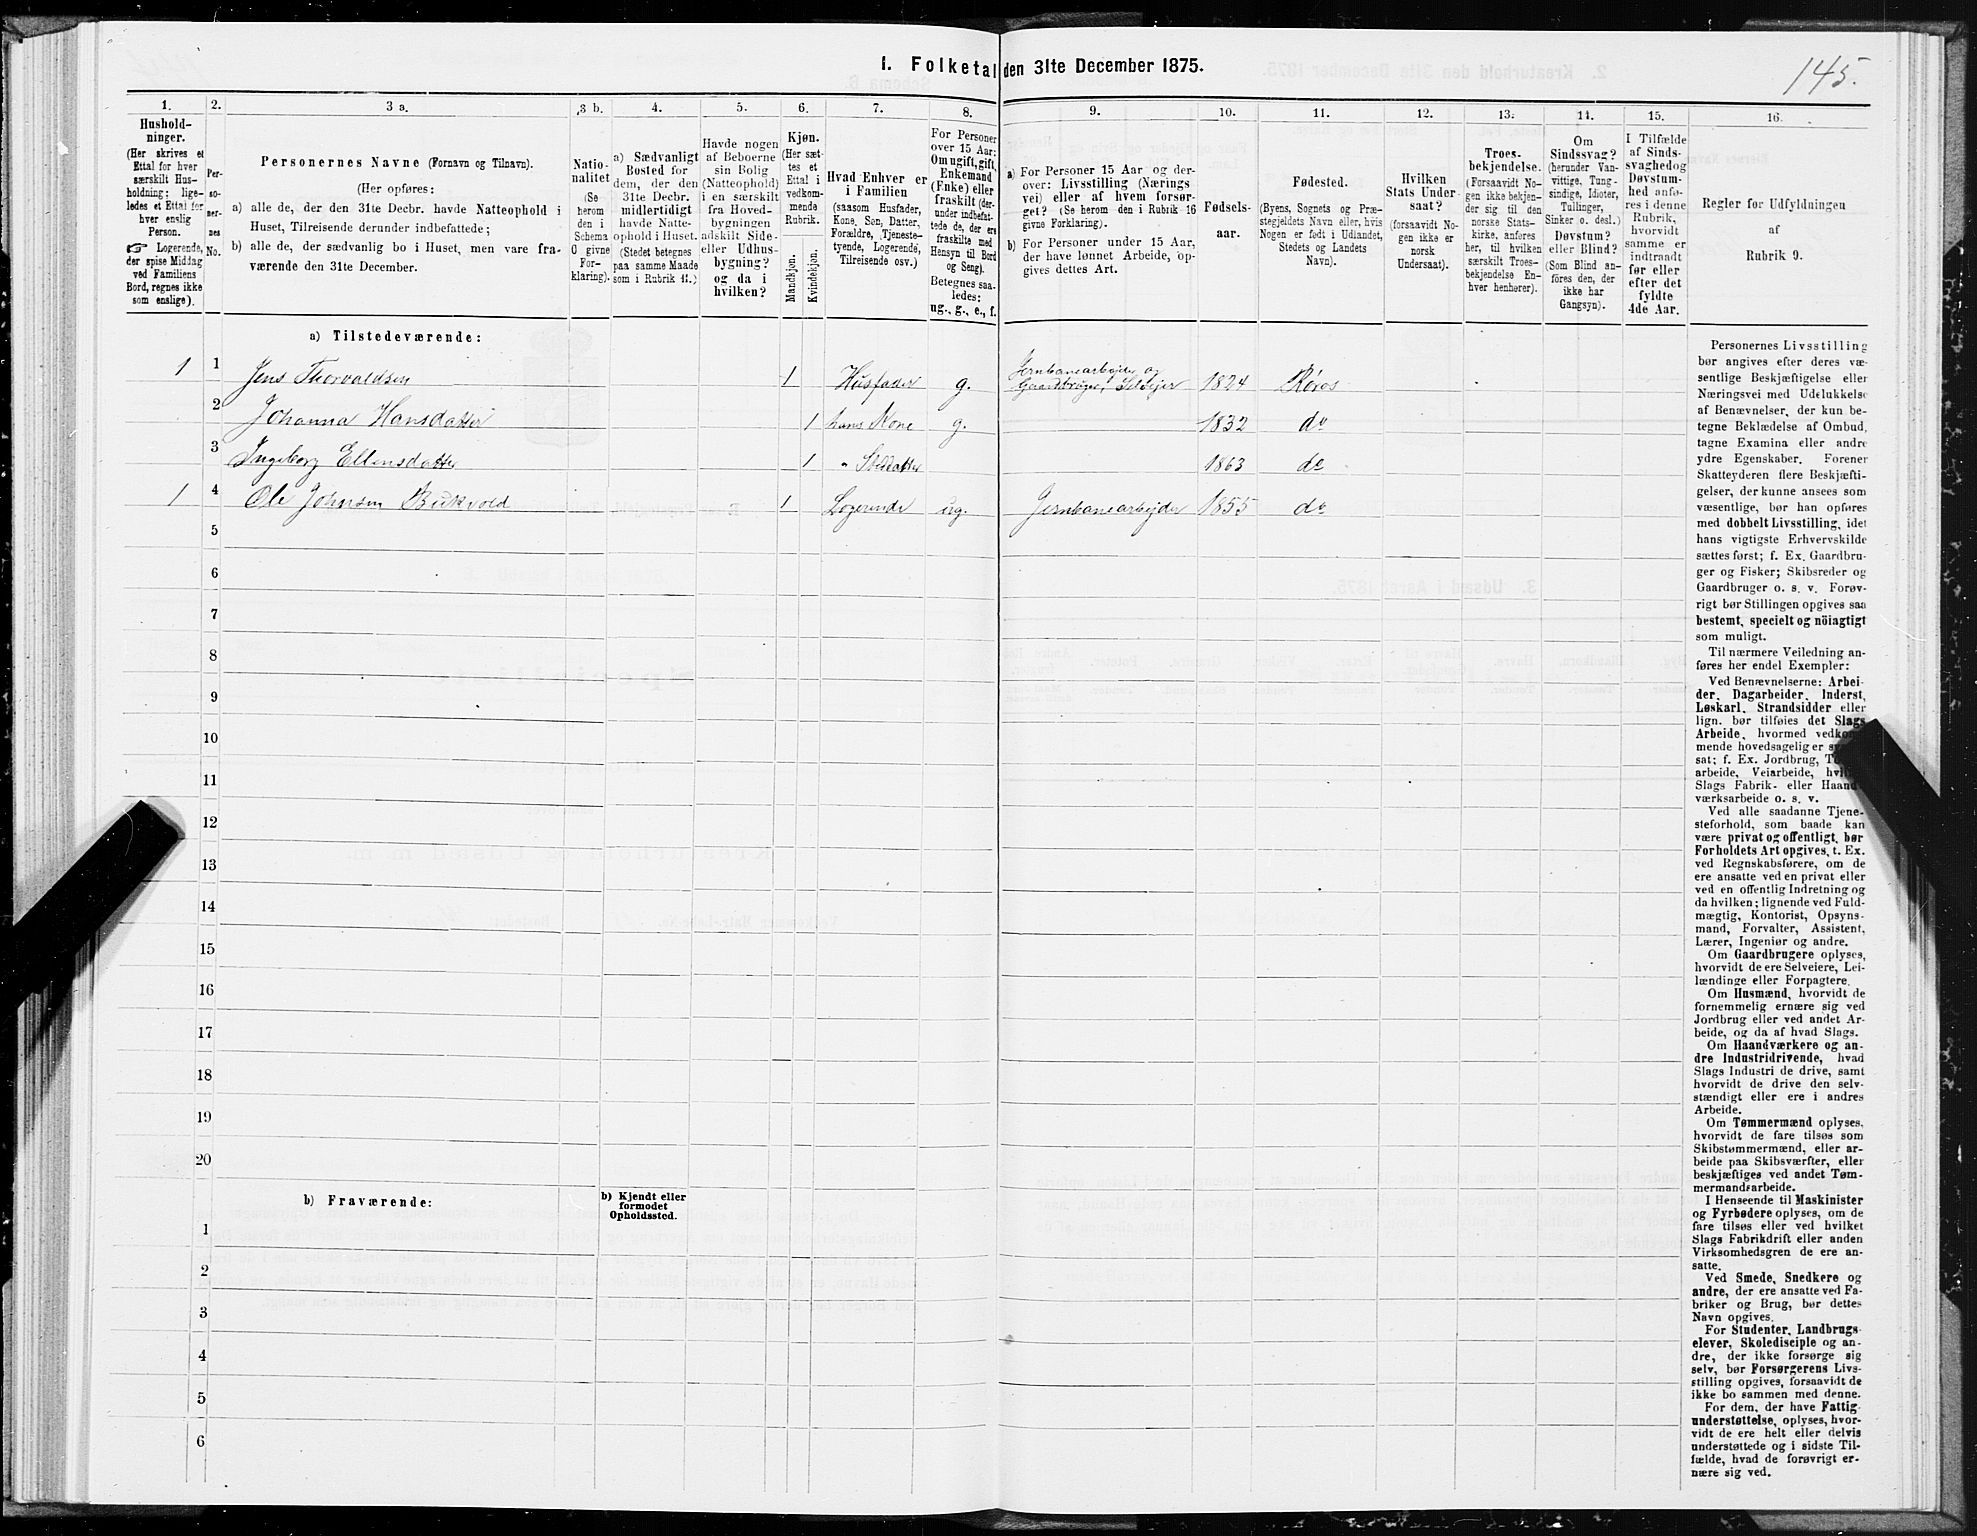 1. Folketal den 31te December 1875.
145.
1.
2.
3 a.
3 b.
4.
5.
6.
7.
8.
9.
10.
11.
12.
13.
14.
15.
16.
Hushold-
ninger.
(Her skrives et
Ettal for hver
særskilt Hus-
holdning; lige-
ledes et Ettal for
hver enslig
Person.
☞ Logerende,
der spise Middag
ved Familiens
Bord, regnes ikke
som enslige).
Per-
so-
ner-
nes
No.
Personernes Navne (Fornavn og Tilnavn).
(Her opføres:
a) alle de, der den 31te Decbr. havde Natteophold i
Huset, Tilreisende derunder indbefattede;
b) alle de, der sædvanlig bo i Huset, men vare fra-
værende den 31te December.
Natio-
nalitet
(Se
herom
den i
Schema
O givne
For-
klaring).
a) Sædvanligt
Bosted for
dem, der den
31te Decbr.
midlertidigt
havde Natte-
ophold i Huset.
(Stedet betegnes
paa samme Maade
som i Rubrik 11.)
Havde nogen
af Beboerne
sin Bolig
(Natteophold)
i en særskilt
fra Hoved-
bygningen
adskilt Side-
eller Udhus-
bygning?
og da i
hvilken?
Kjøn.
(Her sæt-
tes et
Ettal i
vedkom-
mende
Rubrik.
Mandkjøn.
Kvindekjøn.
Hvad Enhver er
i Familien
(saasom Husfader,
Kone, Søn, Datter,
Forældre, Tjeneste-
tyende, Logerende,
Tilreisende osv.)
For Personer
over 15 Aar:
Om ugift, gift,
Enkemand
(Enke) eller
fraskilt (der-
under indbefat-
tede de, der ere
fraskilte med
Hensyn til Bord
og Seng).
Betegnes saa-
ledes:
ug., g., e., f.
a) For Personer 15 Aar og der-
over: Livsstilling (Nærings
vei) eller af hvem forsør-
get? (Se herom den i Rubrik 16
givne Forklaring).
b) For Personer under 15 Aar,
der have lønnet Arbeide, op-
gives dettes Art.
Fødsels-
aar.
Fødested.
(Byens, Sognets og Præ-
stegjeldets Navn eller, hvis
Nogen er født i Udlandet,
Stedets og Landets
Navn).
Hvilken
Stats Under-
saat?
(forsaavidt No-
gen ikke er
norsk
Undersaat).
Troes-
bekjendelse.
(Forsaavidt No-
gen ikke bekjen-
der sig til den
norske Stats-
kirke, anføres
her, til hvilken
særskilt Troes-
bekjendelse En-
hver henhører).
Om
Sindssvag?
(herunder Van-
vittige, Tung-
sindige, Idioter,
Tullinger,
Sinker o. desl.)
Døvstum?
eller Blind?
(Som Blind an-
føres den, der
ikke har
Gangsyn).
I Tilfælde
af Sinds-
svaghed og
Døvstum-
hed anfø-
res i denne
Rubrik,
hvorvidt
samme er
indtraadt
før eller
efter det
fyldte
4de Aar.
Regler for Udfyldningen
af
Rubrik 9.
a) Tilstedeværende:
1 1 Jens Thorvaldsen 1 Husfader g. Jernbanearbejder og Gaardbruger, Selvejer 1824 Røros
2 Johanna Hansdatter 1 hans Kone g. 1832 do
3 Ingeborg Ellensdatter 1 " Steddatter 1863 do
1 4 Ole Johnsen Bukvold 1 Logerende ug. Jernbanearbejder 1855 do
5
6
7
8
9
10
11
12
13
14
15
16
17
18
19
20
b) Fraværende:
b) Kjendt eller
formodet
Opholdssted.
1
2
3
4
5
6
Personernes Livsstilling
bør angives efter deres væ-
sentlige Beskjæftigelse eller
Næringsvei med Udelukkelse
af Benævnelser, der kun be-
tegne Beklædelse af Ombud,
tagne Examina eller andre
ydre Egenskaber. Forener
Skatteyderen flere Beskjæfti-
gelser, der kunne ansees som
væsentlige, bør han opføres
med dobbelt Livsstilling, idet
hans vigtigste Erhvervskilde
sættes først; f. Ex. Gaardbru-
ger og Fisker; Skibsreder og
Gaardbruger o. s. v. Forøv-
rigt bør Stillingen opgives saa
bestemt, specielt og nöiagtigt
som muligt.
Til nærmere Veiledning an-
føres her endel Exempler:
Ved Benævnelserne: Arbei-
der, Dagarbeider, Inderst,
Løskarl, Strandsidder eller
lign. bør tilføies det Slags
Arbeide, hvormed vedkom-
mende hovedsagelig er
sat; f. Ex. Jordbrug,
arbeide, Veiarbeide,
Slags Fabrik- eller Haand-
værksarbeide o. s. v.
Ved alle saadanne Tjene-
steforhold, som baade kan
være privat og offentligt, bør
Forholdets Art opgives, t. Ex.
ved Regnskabsførere, om de
ere ansatte ved en privat eller
ved en offentlig Indretning og
da hvilken; lignende ved Fuld-
mægtig, Kontorist, Opsyns-
mand, Forvalter, Assistent,
Lærer, Ingeniør og andre.
Om Gaardbrugere oplyses,
hvorvidt de ere Selveiere, Lei-
lændinge eller Forpagtere.
Om Husmænd, hvorvidt de
fornemmelig ernære sig ved
Jordbrug eller ved andet Ar-
beide, og da af hvad Slags.
Om Haandværkere og an-
dre Industridrivende, hvad
Slags Industri de drive, samt
hvorvidt de drive den selv-
stændigt eller ere i andres
Arbeide.
Om Tømmermænd oplyses,
hvorvidt de fare tilsøs som
Skibstømmermænd, eller ar-
beide paa Skibsværfter, eller
beskjæftiges ved andet Tøm-
mermandsarbeide.
I Henseende til Maskinister
og Fyrbødere oplyses, om de
fare tilsøs eller ved hvilket
Slags Fabrikdrift eller anden
Virksomhedsgren de ere an-
satte.
Ved Smede, Snedkere og
andre, der ere ansatte ved Fa-
briker og Brug, bør dettes
Navn opgives.
For Studenter, Landbrugs-
elever, Skoledisciple og an-
dre, der ikke forsørge sig
selv, bør Forsørgerens Livs-
stilling opgives, forsaavidt de
ikke bo sammen med denne.
For dem, der have Fattig-
understøttelse, oplyses, hvor-
vidt de ere helt eller delvis
understøttede og i sidste Til-
fælde, hvad de forøvrigt er-
nære sig ved.